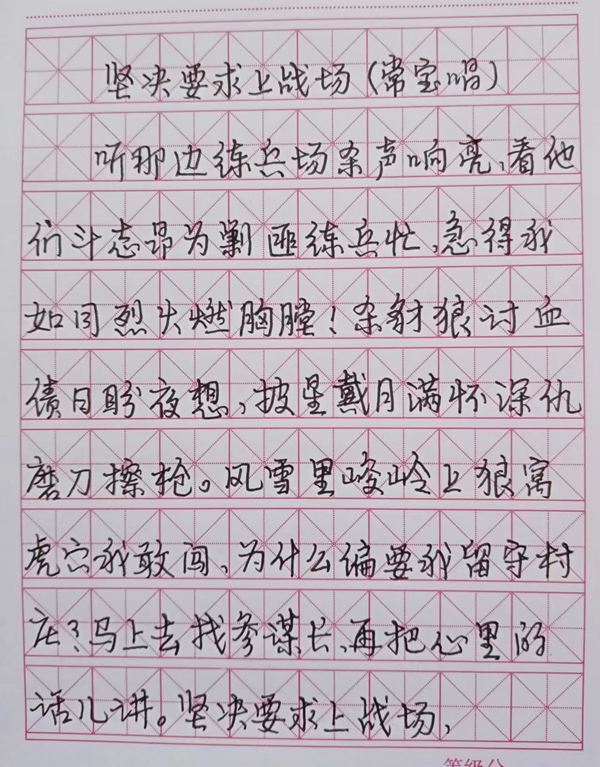 坚决要求上战场(常宝唱)
听那边练兵场杀声响亮、看他
们斗志昂为剿匪练兵忙、急得我
如同烈火燃胸膛！杀豺狼讨血
债日盼夜想、披星戴月满怀深仇
磨刀擦枪。风雪里峻岭上狼窝
虎穴我敢闯、为什么偏要我留守村
庄？马上去找参谋长、再把心里的
话儿讲。坚决要求上战场、